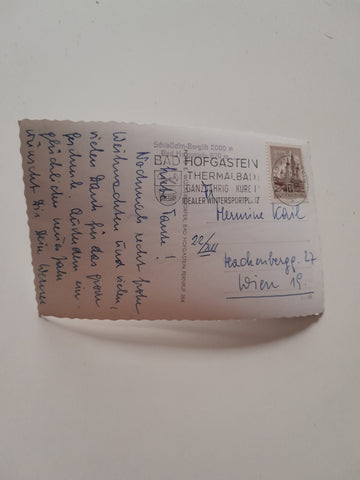 Schloßalm-Berglift 2000 m
BAD HOFGASTEIN
THERMALBAD
GANZJÄHRIG KURE
IDEALER WINTERSPORTPL
Liebe Tante!
Nochmals recht frohe
Weihnachten und vielen,
vielen Dank für das große
Geschenk. Außerdem ein
glückliches neues Jahr
wünscht Dir Dein Werner
22/XII
Hermine Karl
Hackenbergg. 27
Wien 19.